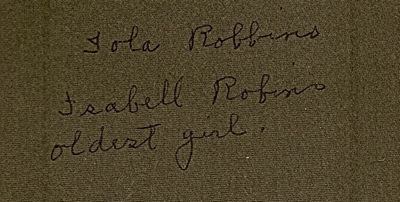 Iola Robbins
Isabell Robins
oldest girl.